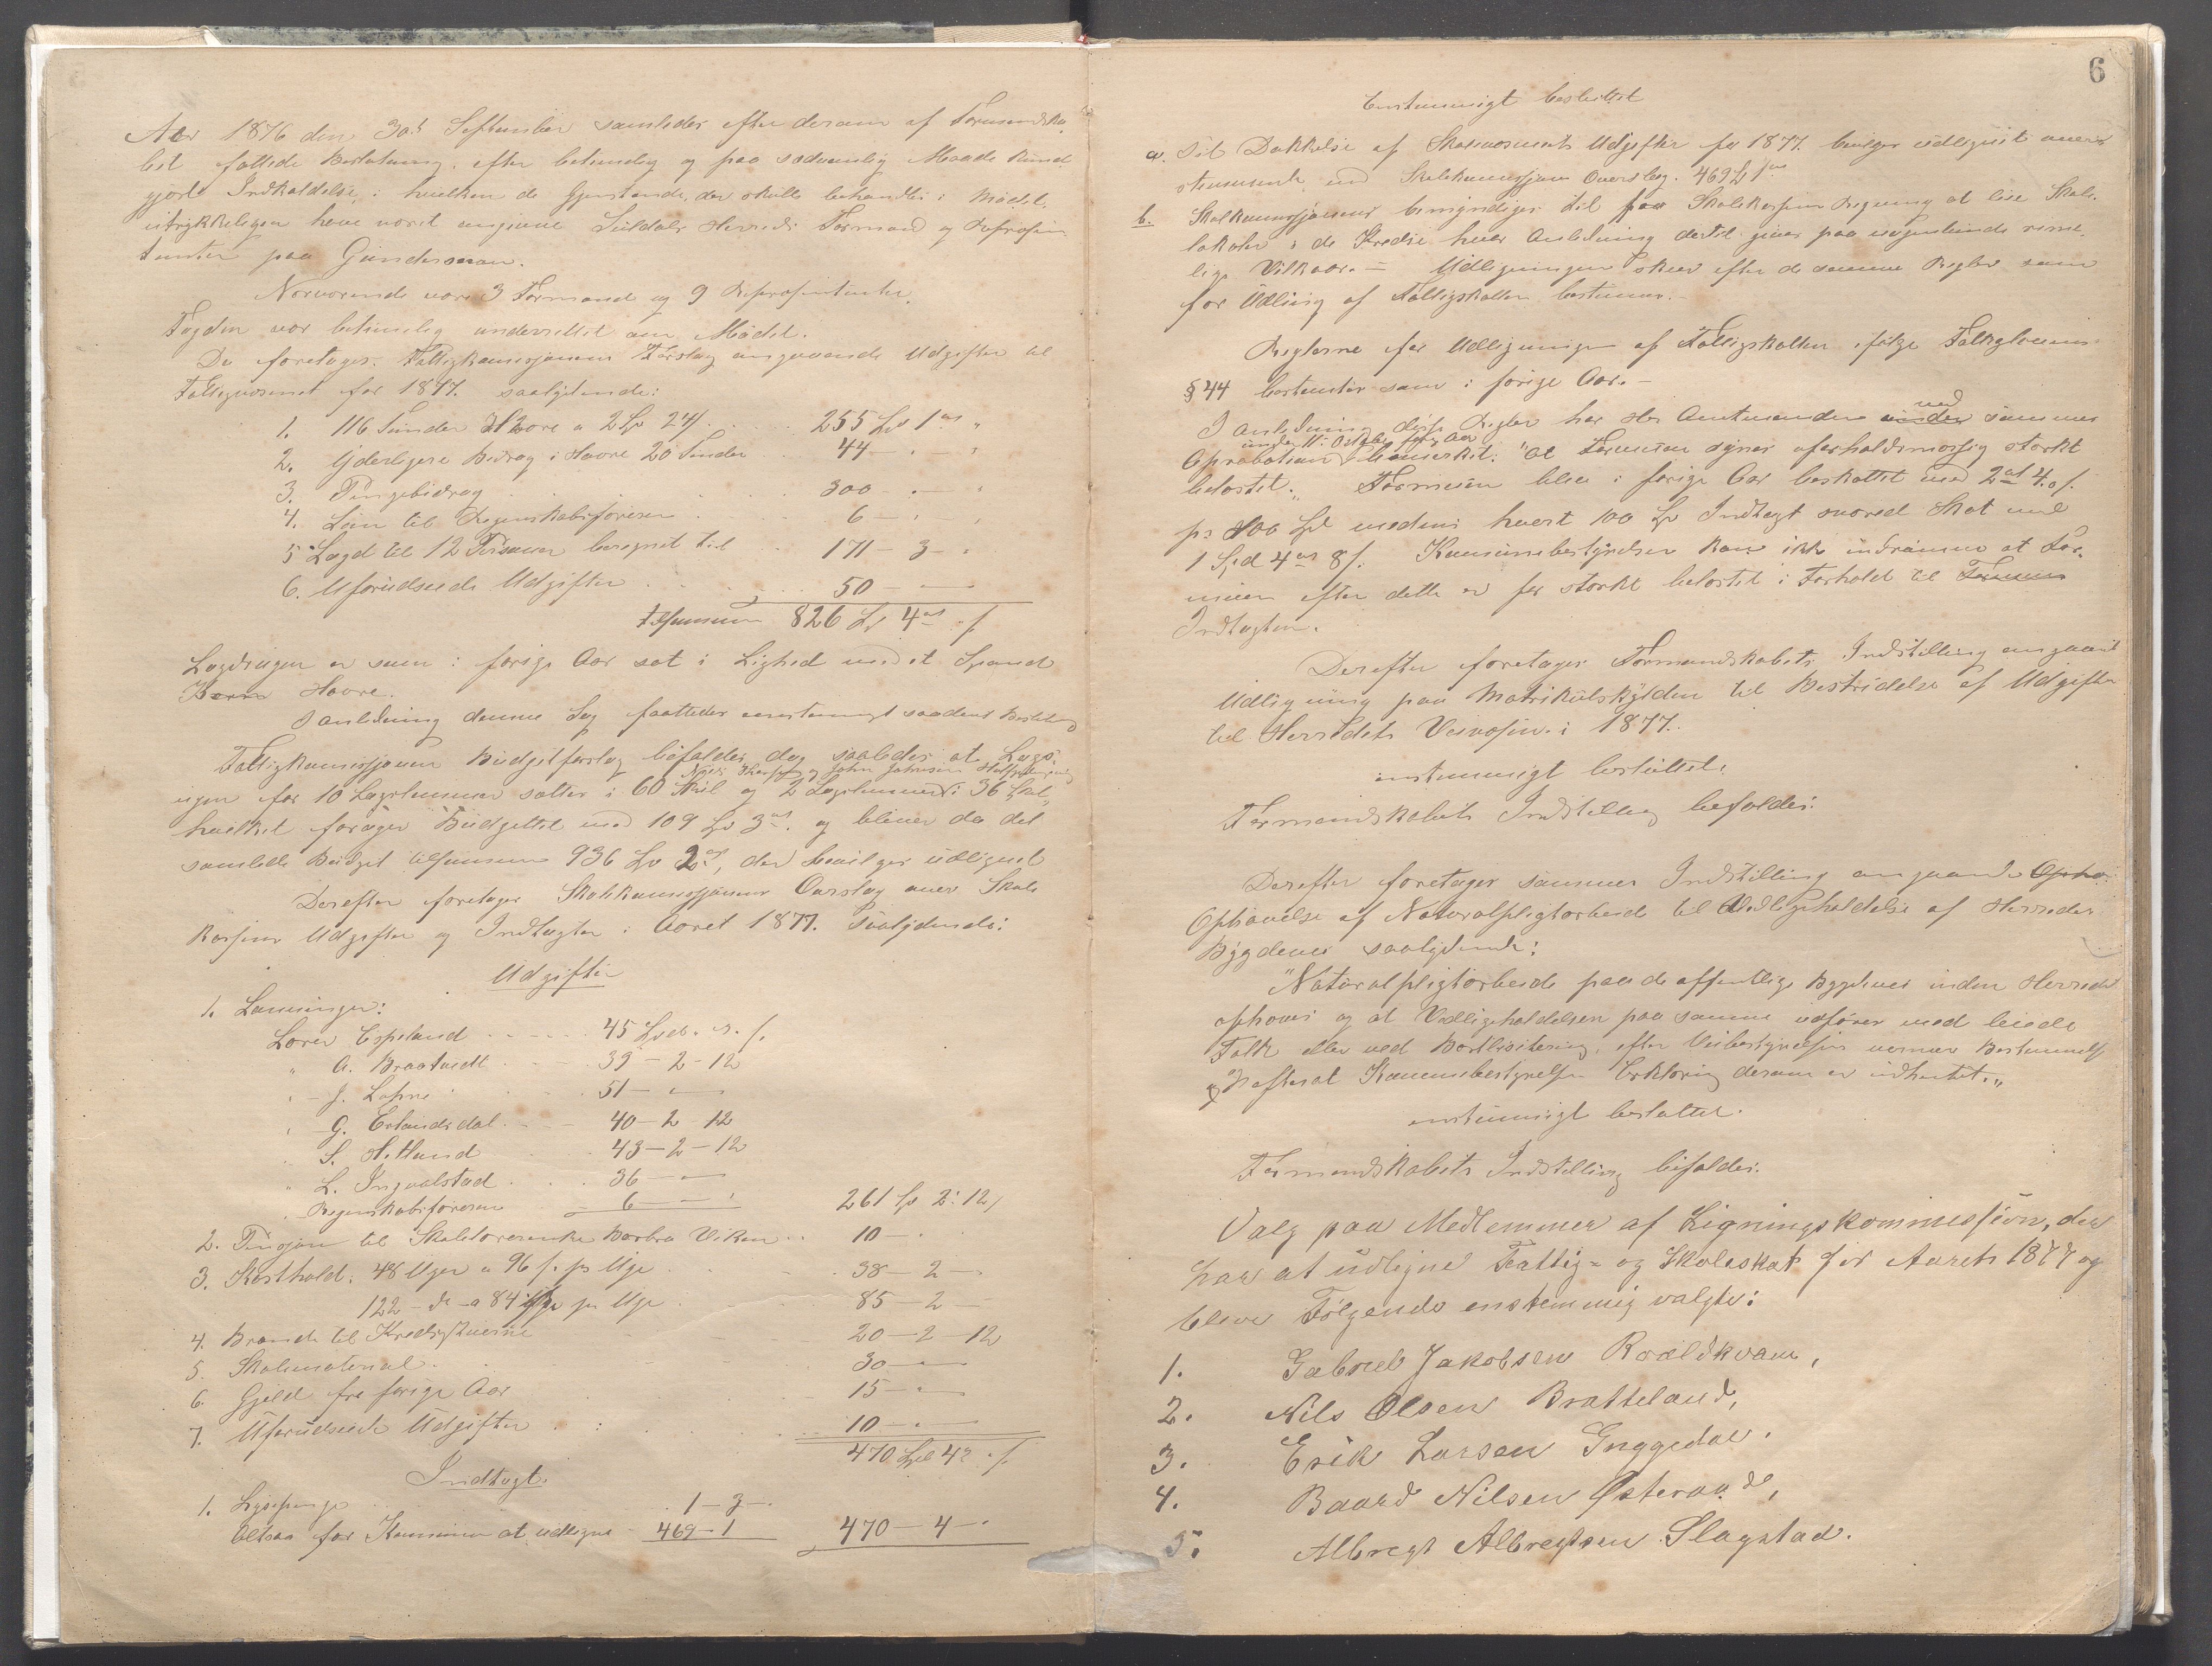 Aar 1876 den 30te September samledes efter derom af Formandska-
bet fattede Beslutning, efter betimelig og paa sædvanlig Maade kund-
gjort Indkaldelse, i hvilken de Gjenstande, der skulle behandles i Mødet,
udtrykkeligen have været angivne Suldals Herreds Formænd og Repræsen
tanter paa Gunderonan.
Nærværende vare 3 Formænd og 9 Repræsentanter.
Fogden var betimelig underrettet om Mødet.
De foretages. Fattigkommissjonens Forslag angaaende Udgifter til
Fattigvæsenet for 1877. saalydende:
1. 116 Tønder Havre a 2 Spd 24 255 Spd 1 ort "
2. Yderligere Bidrag i Havre 20 Tønder 44 — " — "
3. Pengebidrag 300 — " — "
4. Løn til Regnskabsføreren 6 — " — "
5 Lægd til 12 Personer beregnet til 171 — 3 — "
6. Uforudseede Udgifter 50 — " —
tilsammen 826 Spd 4 ort " s.
Lægdragen er som i forige Aar sat i Lighed med et Spand
Korn Havre.
I anledning denne Sag fattedes eenstemmigt saadant Beslutning
Fattigkommissjonens Budgetforslag bifaldes dog saaledes at Lægd-
ugen for 10 Lægdslemmer sættes i 60 Skil og 2 Lægdslemmer i 36 Skil
hvilket forøger Budgettet med 109 Spd 3 ort. og bliver da det
samlede Budget tilsammen 936 Spd 2 ort, der bevilges udlignet
Derefter foretages Skolekommissjonens Overslag over Skole
kassens Udgifter og Indtægter i Aaret 1877. saalydende:
Udgifter
1. Lønninger:
Lærer Espeland 45 Spd. " s.
" A. Braatveit 39 — 2 — 12
" J. Løhne 51 — " —
" G. Erlandsdal 40 — 2 — 12
" S. Hetland 43 — 2 — 12
" L. Ingvalstad 36 — " —
" Regnskabsføreren 6 — " — 261 Spd 2: 12 s
2. Pensjon til Skolelærerenke Barbra Viken 10 — "
3. Kosthold: 48 Uger a 96 s. pr Uge 38 — 2 —
122 — do — a 84 s pr Uge 85 — 2 —
4. Brænde til Kredsstuerne 20 — 2 — 12
5. Skolemateriel 30 — " —
6. Gjeld fra forige Aar 15 — " —
7. Uforudseede Udgifter 10 — " —
470 Spd 4 " s.
Indtægt.
1. Lysepenge 1 — 3 — "
Altsaa for Kommunen at udligne 469 — 1 470 — 4 — "
6
Enstemmigt besluttet
a. Til Dækkelse af Skolevæsenets Udgifter for 1877. bevilges udlignet overens
stemmende med Skolekommissjonens Overslag. 469 Spd 1 ort
b. Skolekommissjonen bemyndiges til paa Skolekassens Regning at leie Skole-
lokaler i de Kredse hvor Anledning dertil gives paa nogenlunde rime-
lige Vilkaar. — Udligningen skeer efter de samme Regler som
for Udligning af Fattigskatten bestemmes.
Reglerne for Udligningen af Fattigskatten ifølge Fattiglovens
§44 bestemtes som i forige Aar. —
I Anledning disse Regler har Hr Amtmanden under ved sammes
Aprobation under 11. Oktober forrige Aar bemærket: "at Formuen synes uforholdsmæssig stærkt
belastet." Formuen blev i forige Aar beskattet med 2 ort 4 s.
pr 100 Spd medens hvert 100 Spd Indtægt svared Skat med
1 Spd 4 ort 8 s. Kommunebestyrelsen kan ikke indrømme at For-
muen efter dette er for stærkt belastet i Forhold til Formuen
Indtægten.
Derefter foretages Formandskabets Indstilling angaaende
Udligning paa Matrikulskylden til Bestridelse af Udgifter
til Herredets Veivæsen i 1877.
enstemmigt besluttet:
Formandskabets Indstilling bifaldes.
Derefter foretages sammes Indstilling angaaende Ophæ
Ophævelse af Naturalpligtarbeid til Vedligeholdelse af Herredets
Bygdeveie saalydende:
"Naturalpligtarbeide paa de offentlige Bygdeveie inden Herredet
ophæves og at Vedligeholdelsen paa samme udføres med leiede
Folk eller ved Bortlicitering, efter Veibestyrelsens nærmere Bestemmelse
efterat Kommunebestyrelsens Erklæring derom er indhentet."
enstemmigt besluttet.
Formandskabets Indstilling bifaldes.
Valg paa Medlemmer af Ligningskommissjon, der
har at udligne Fattig- og Skoleskat for Aaret 1877 og
bleve Følgende enstemmig valgte:
1. Gabriel Jakobsen Roaldkvam,
2. Nils Olsen Bratteland,
3. Erik Larsen Guggedal.
4. Baard Nilsen Østeraad,
5. Albregt Albregtsen Slagstad.